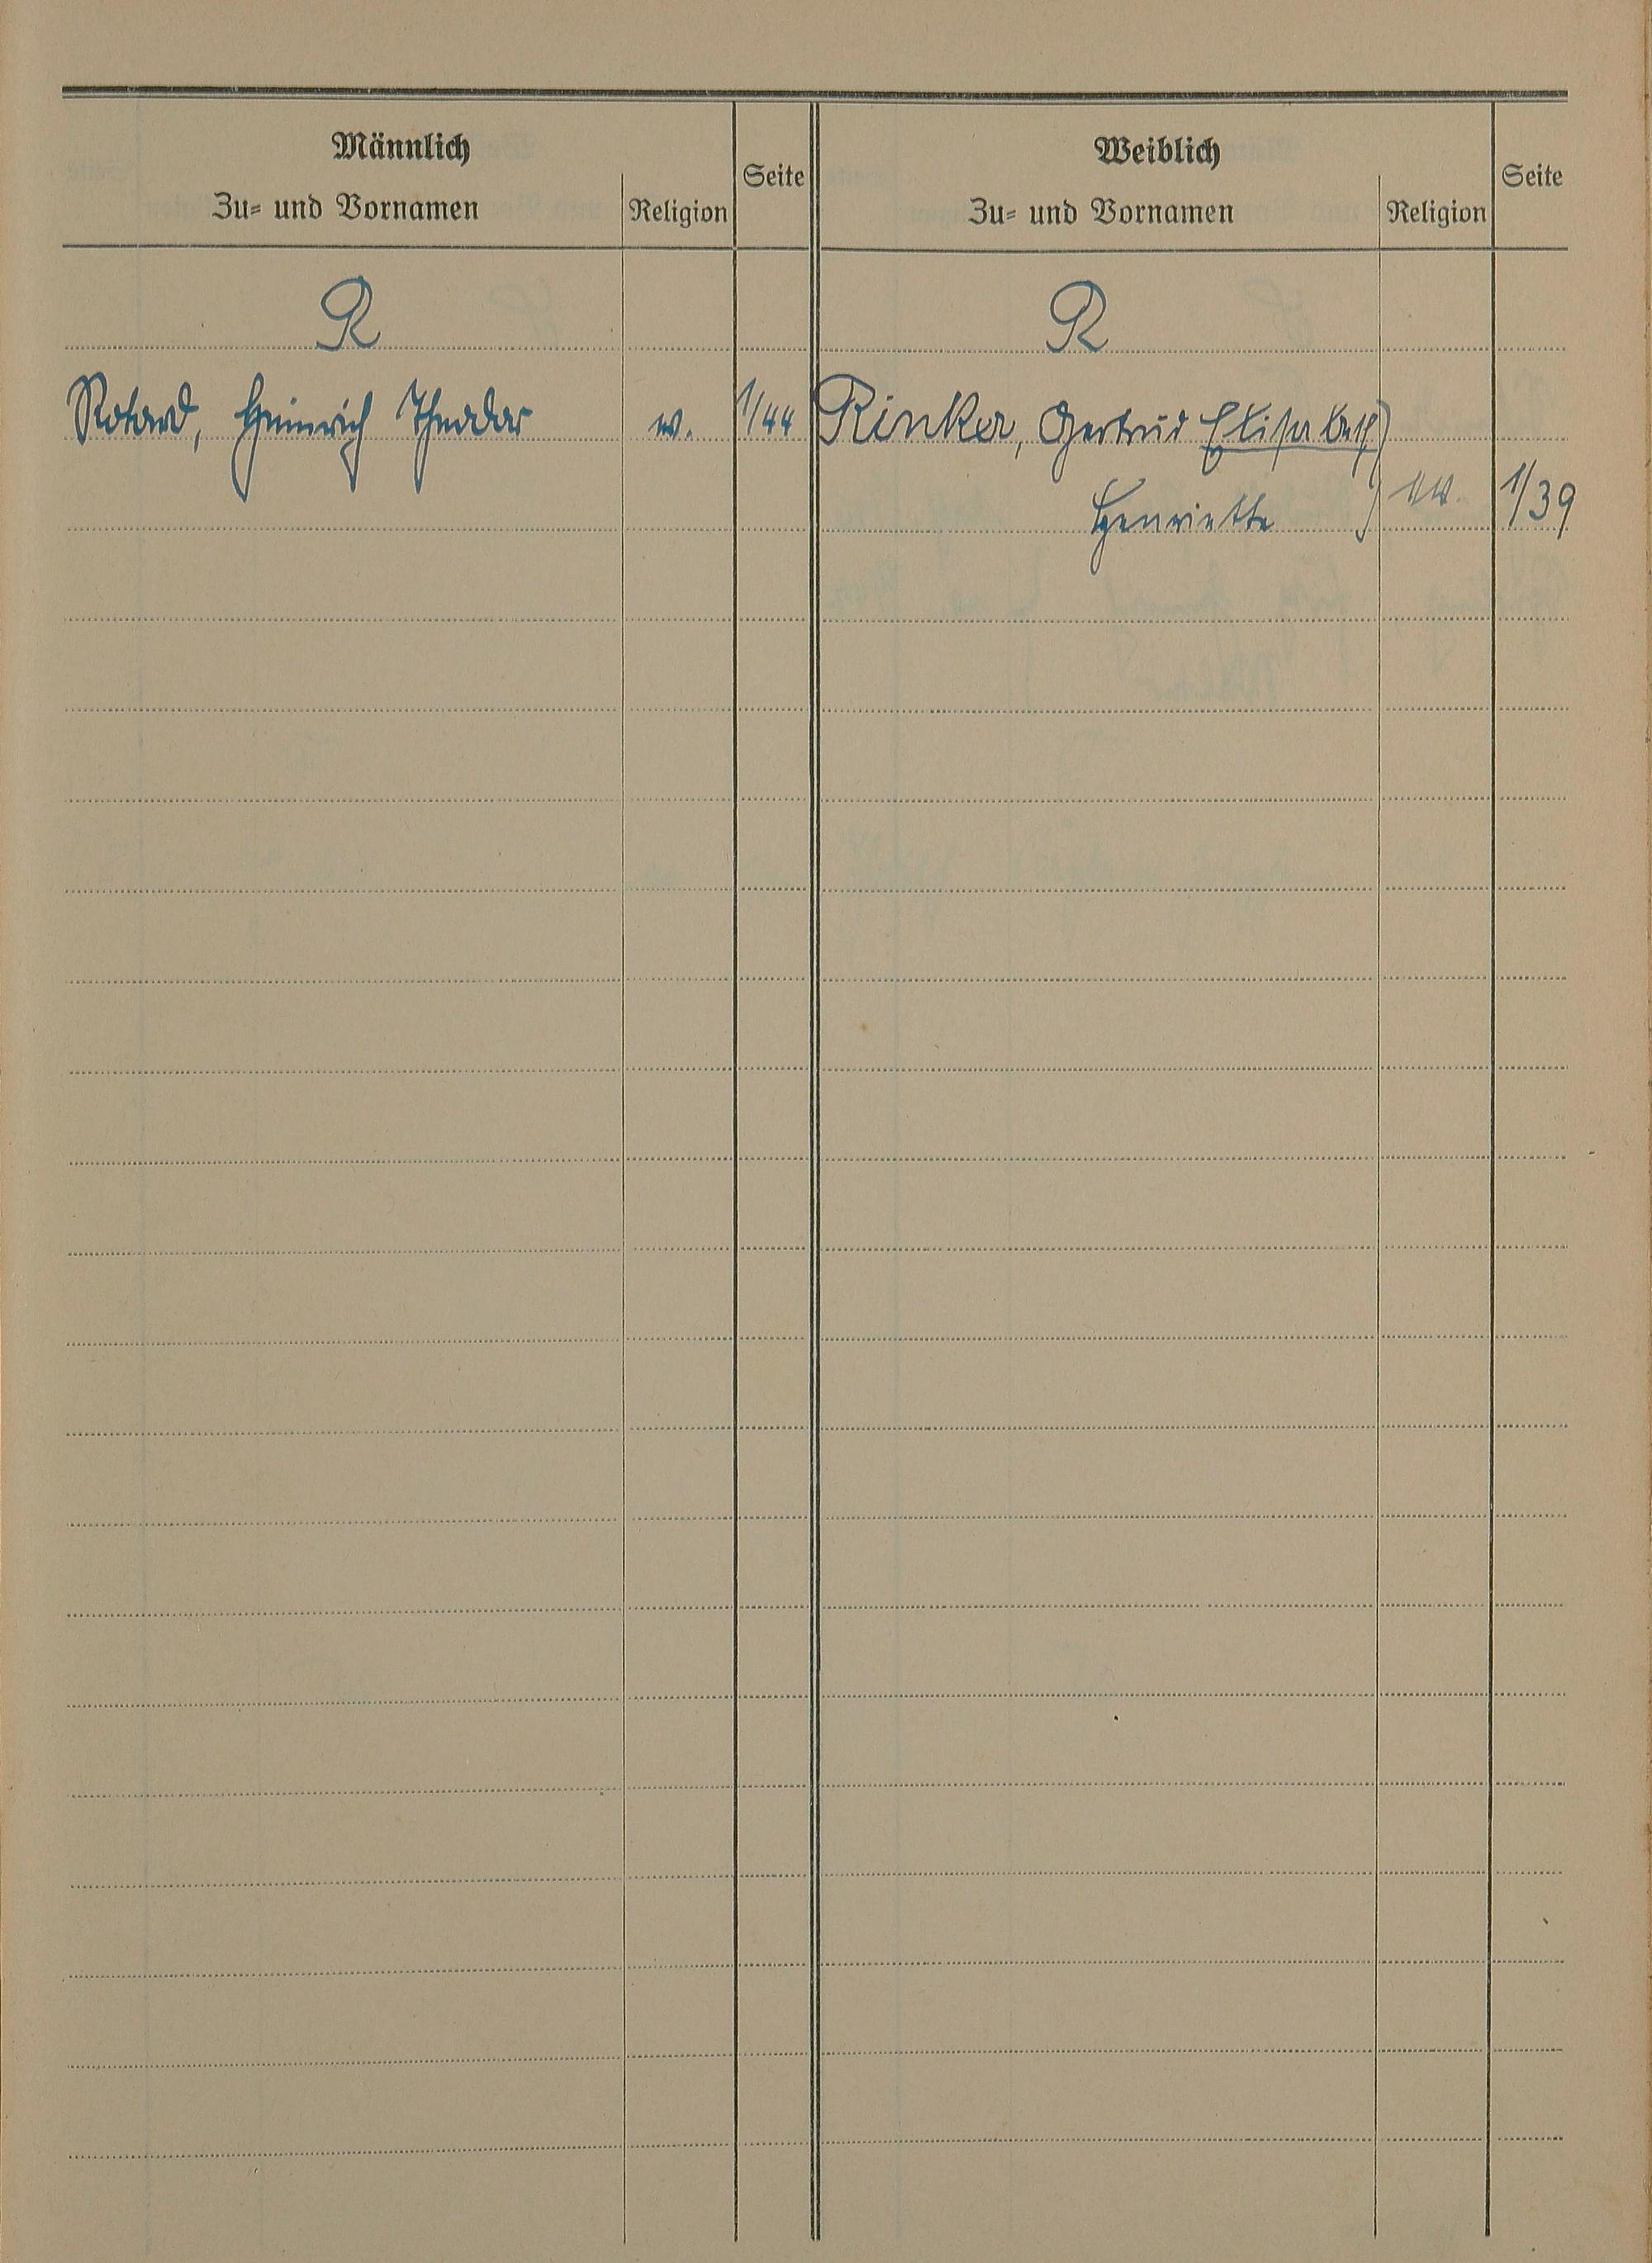 Männlich
Zu- und Vornamen
Religion
Seite
Weiblich
Zu- und Vornamen
Religion
Seite
R
R
Heinrich Theodor
1/44
Rinker, Gertrud Elisabeth
Henriette
1/39